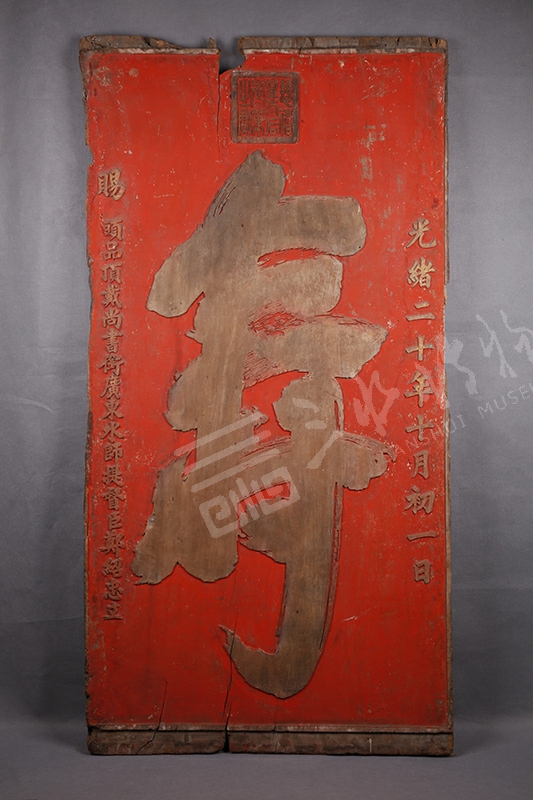 光緒二十年十月初一日
壽
賜
頭品頂戴尚書銜廣東水師提督臣鄭紹忠立